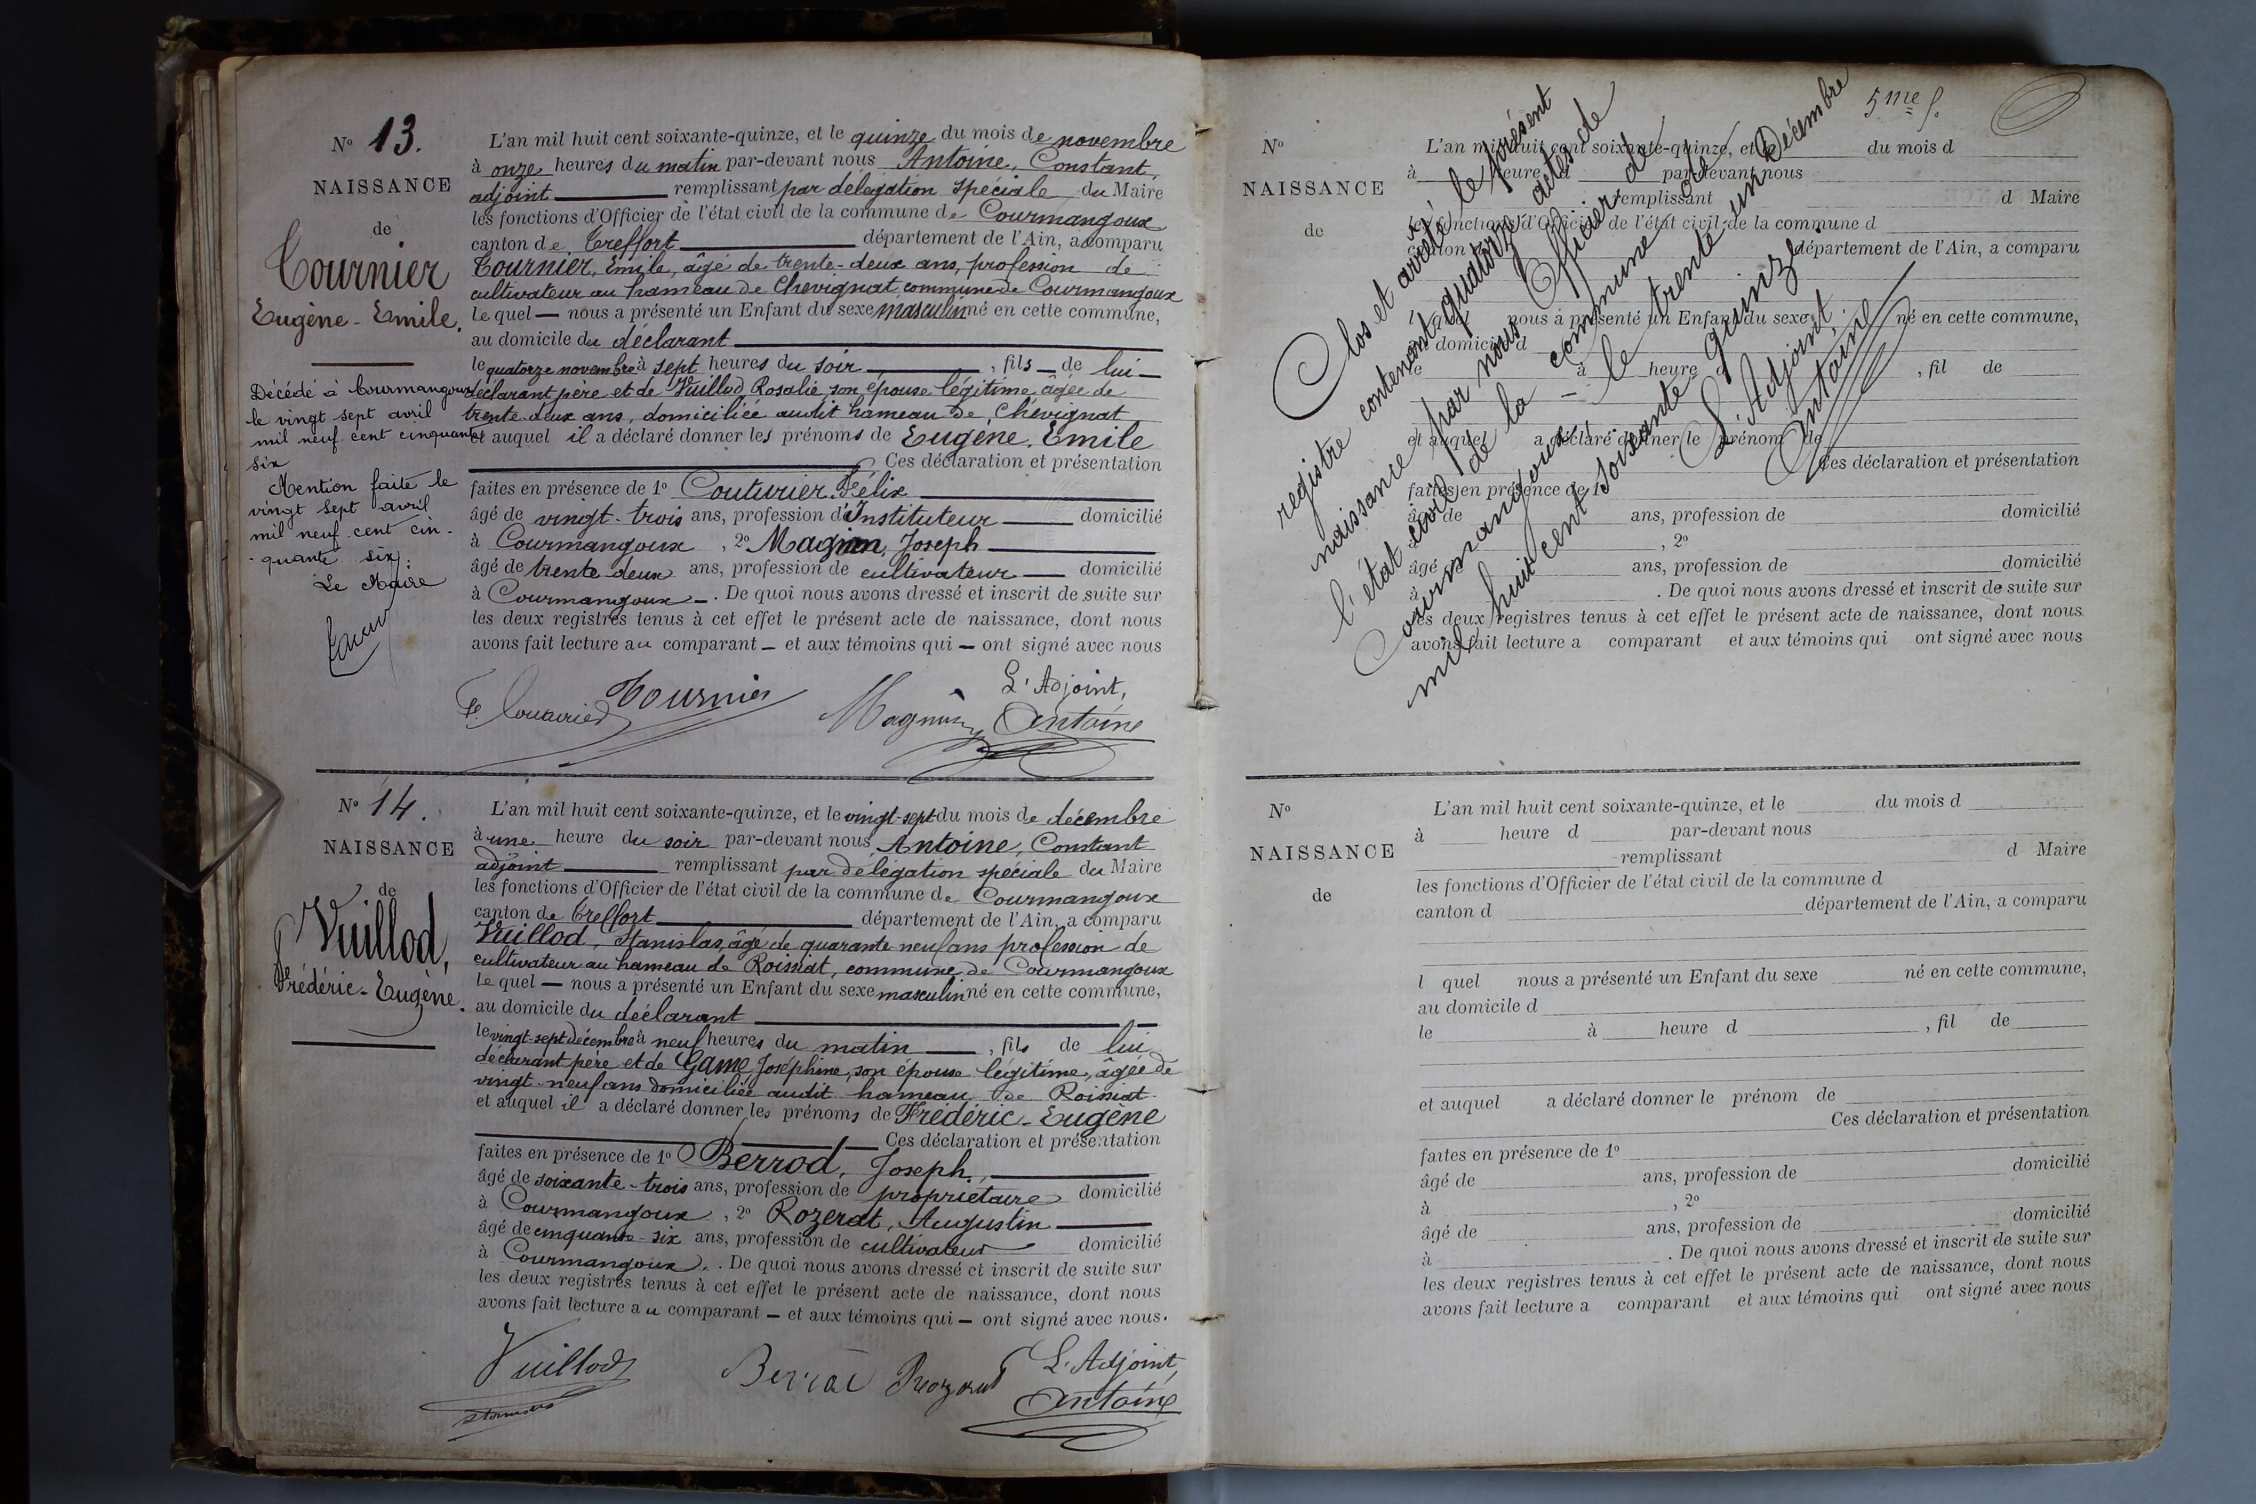 N° 13.
NAISSANCE
de
Tournier
Eugène - Emile.
Décédé à Courmangoux
le vingt sept avril
mil neuf cent cinquante
six
Mention faite le
vingt sept avril
mil neuf cent cin-
-quante six.
Le Maire
L'an mil huit cent soixante-quinze, et le quinze du mois de novembre
à onze heures du matin par-devant nous Antoine, Constant,
adjoint remplissant par délégation spéciale du Maire
les fonctions d'Officier de l'état civil de la commune de Courmangoux
canton de Treffort département de l'Ain, a comparu
Tournier, Emile, âgé de trente-deux ans, profession de
cultivateur au hameau de Chevignat, commune de Courmangoux
le quel — nous a présenté un Enfant du sexe masculin né en cette commune,
au domicile du déclarant
le quatorze novembre à sept heures du soir , fils — de lui —
déclarant père et de Vuillod Rosalie, son épouse légitime, âgée de
trente-deux ans, domiciliée audit hameau de Chevignat
et auquel il a déclaré donner les prénoms de Eugène, Emile
Ces déclaration et présentation
faites en présence de 1° Couturier, Félix
âgé de vingt-trois ans, profession d'Instituteur domicilié
à Courmangoux , 2° Magnin, Joseph
âgé de trente-deux ans, profession de cultivateur domicilié
à Courmangoux —. De quoi nous avons dressé et inscrit de suite sur
les deux registres tenus à cet effet le présent acte de naissance, dont nous
avons fait lecture au comparant — et aux témoins qui — ont signé avec nous
F. Couturier Tournier Magnin L'Adjoint,
Antoine
N° 14.
NAISSANCE
de
Vuillod,
Frédéric-Eugène.
L'an mil huit cent soixante-quinze, et le vingt-sept du mois de décembre
à une heure du soir par-devant nous Antoine, Constant
adjoint remplissant par délégation spéciale du Maire
les fonctions d'Officier de l'état civil de la commune de Courmangoux
canton de Treffort département de l'Ain, a comparu
Vuillod, Stanislas, âgé de quarante neuf ans profession de
cultivateur au hameau de Roissiat, commune de Courmangoux
le quel — nous a présenté un Enfant du sexe masculin né en cette commune,
au domicile du déclarant
le vingt-sept décembre à neuf heures du matin , fils de lui
déclarant père et de Game, Joséphine, son épouse légitime, âgée de
vingt-neuf ans domiciliée audit hameau de Roissiat
et auquel il a déclaré donner les prénoms de Frédéric-Eugène
Ces déclaration et présentation
faites en présence de 1° Berrod, Joseph,
âgé de soixante-trois ans, profession de propriétaire domicilié
à Courmangoux , 2° Rozerat, Augustin
âgé de cinquante-six ans, profession de cultivateur domicilié
à Courmangoux . De quoi nous avons dressé et inscrit de suite sur
les deux registres tenus à cet effet le présent acte de naissance, dont nous
avons fait lecture au comparant — et aux témoins qui — ont signé avec nous.
Vuillod Stanislas
L'Adjoint,
Antoine
5me f.
N°
NAISSANCE
de
L'an mil huit cent soixante-quinze, et le du mois d
à heure d par-devant nous
remplissant d Maire
les fonctions d'Officier de l'état civil de la commune d
canton d département de l'Ain, a comparu
l quel nous a présenté un Enfant du sexe né en cette commune,
au domicile d
le à heure d , fil de
et auquel a déclaré donner le prénom de
Ces déclaration et présentation
faites en présence de 1°
âgé de ans, profession de domicilié
à , 2°
âgé de ans, profession de domicilié
à . De quoi nous avons dressé et inscrit de suite sur
les deux registres tenus à cet effet le présent acte de naissance, dont nous
avons fait lecture a comparant et aux témoins qui ont signé avec nous
Clos et arrêté le présent
registre contenant quatorze actes de
naissance par nous Officier de
l'état civil de la commune de
Courmangoux, le trente un Décembre
mil huit cent soixante quinze.
L'Adjoint,
Antoine
N°
NAISSANCE
de
L'an mil huit cent soixante-quinze, et le du mois d
à heure d par-devant nous
remplissant d Maire
les fonctions d'Officier de l'état civil de la commune d
canton d département de l'Ain, a comparu
l quel nous a présenté un Enfant du sexe né en cette commune,
au domicile d
le à heure d , fil de
et auquel a déclaré donner le prénom de
Ces déclaration et présentation
faites en présence de 1°
âgé de ans, profession de domicilié
à , 2°
âgé de ans, profession de domicilié
à . De quoi nous avons dressé et inscrit de suite sur
les deux registres tenus à cet effet le présent acte de naissance, dont nous
avons fait lecture a comparant et aux témoins qui ont signé avec nous